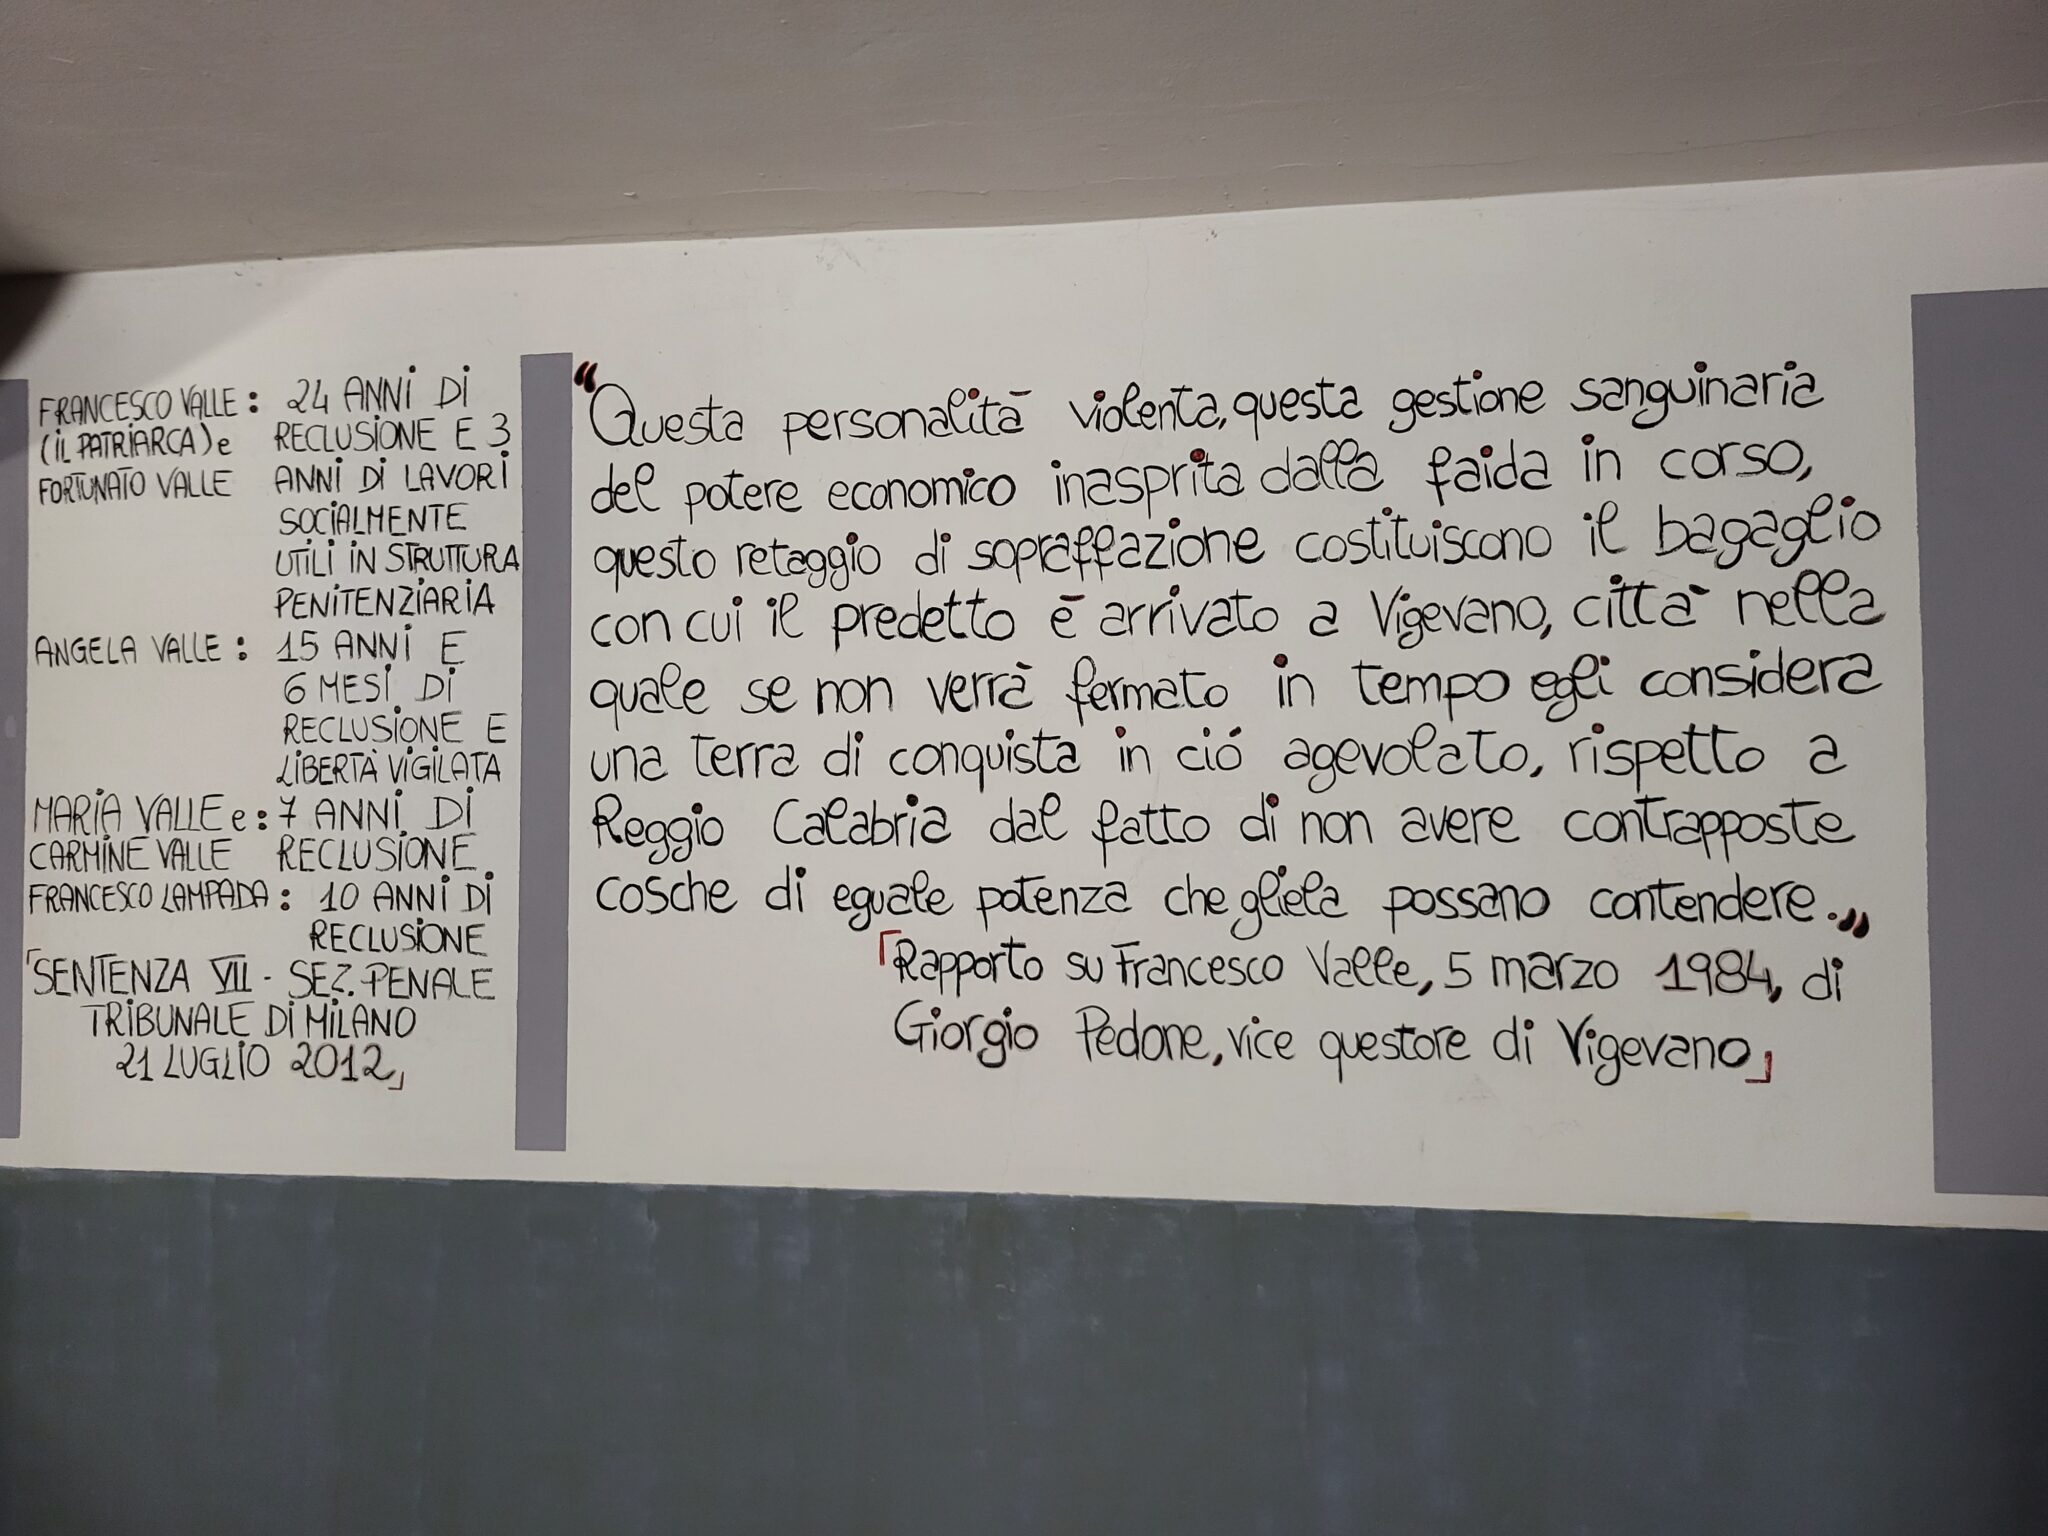 FRANCESCO VALLE: 24 ANNI DI
(IL PATRIARCA) e RECLUSIONE E 3
FORTUNATO VALLE ANNI DI LAVORI
SOCIALMENTE
UTILI IN STRUTTURA
PENITENZIARIA
ANGELA VALLE: 15 ANNI E
6 MESI DI
RECLUSIONE E
LIBERTÀ VIGILATA
MARIA VALLE e: 7 ANNI DI
CARMINE VALLE RECLUSIONE
FRANCESCO LAMPADA: 10 ANNI DI
RECLUSIONE
「SENTENZA VII - SEZ. PENALE
TRIBUNALE DI MILANO
21 LUGLIO 2012」
“Questa personalità violenta, questa gestione sanguinaria
del potere economico inasprita dalla faida in corso,
questo retaggio di sopraffazione costituiscono il bagaglio
con cui il predetto è arrivato a Vigevano, città nella
quale se non verrà fermato in tempo egli considera
una terra di conquista in ció agevolato, rispetto a
Reggio Calabria dal fatto di non avere contrapposte
cosche di eguale potenza che gliela possano contendere.”
「Rapporto su Francesco Valle, 5 marzo 1984, di
Giorgio Pedone, vice questore di Vigevano」